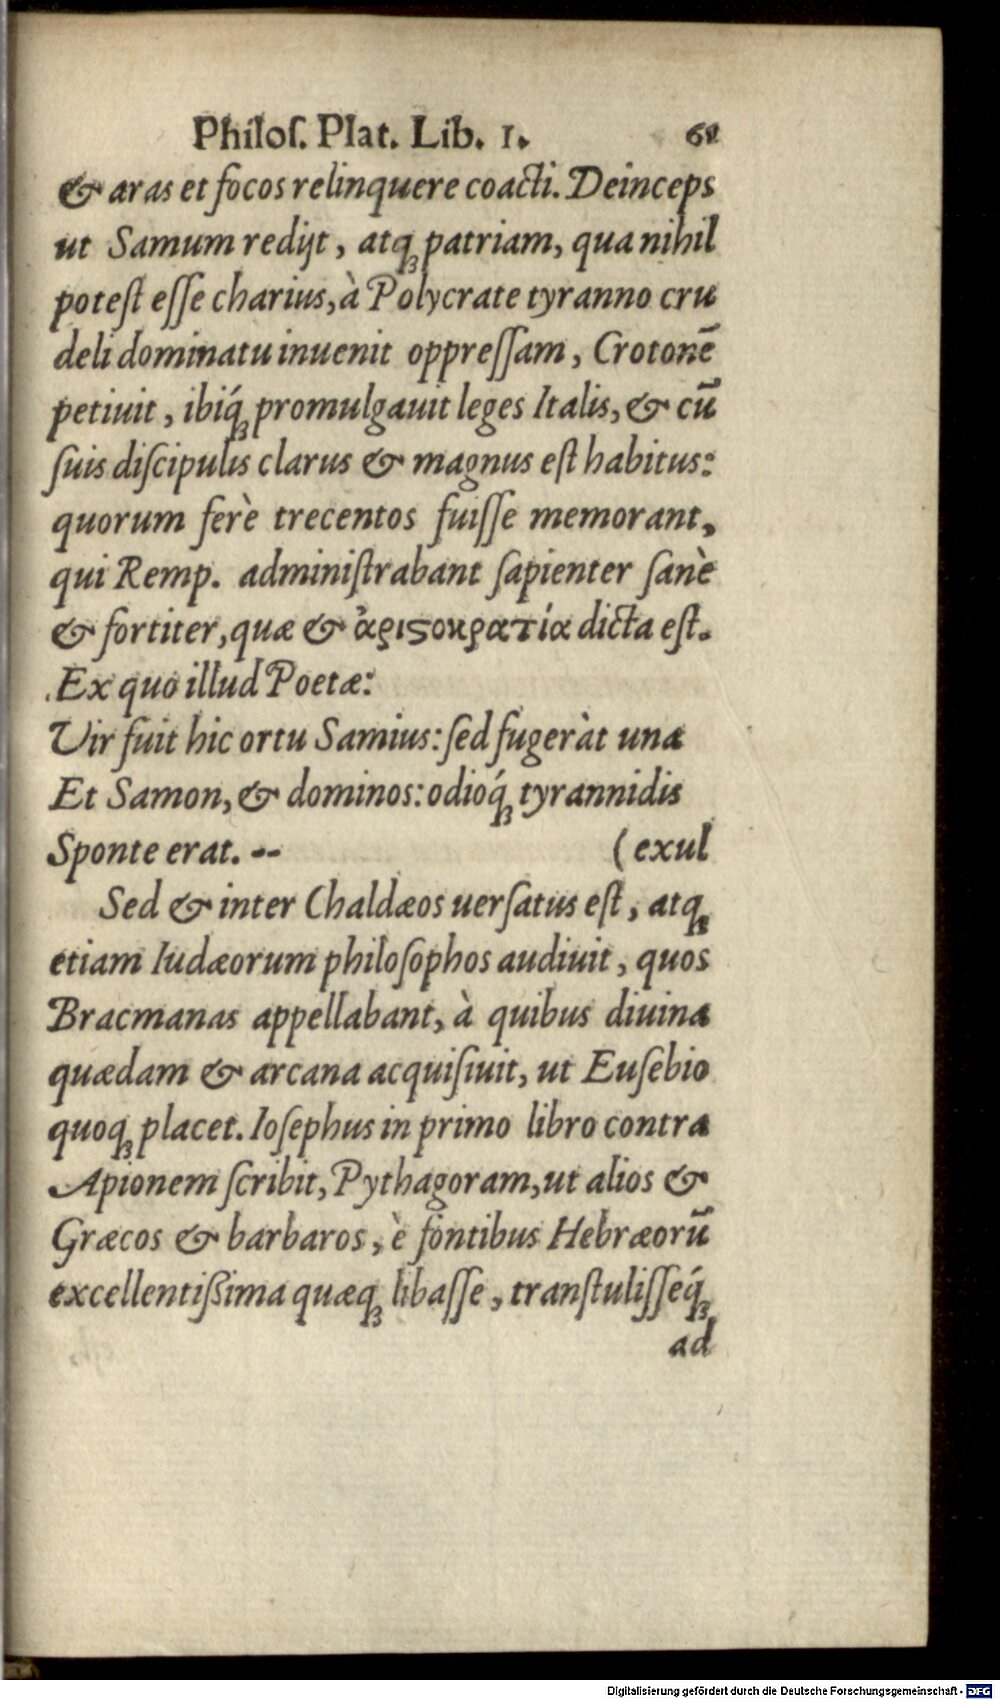 Philoſ. Plat. Lib. 1. 61
& aras et focos relinquere coacti. Deinceps
ut Samum redijt, atq; patriam, qua nihil
poteſt eſſe charius, à Polycrate tyranno cru
deli dominatu inuenit oppreſſam, Crotonē
petiuit, ibiq́; promulgauit leges Italis, & cū
ſuis diſcipulis clarus & magnus eſt habitus:
quorum ferè trecentos fuiſſe memorant,
qui Remp. adminiſtrabant ſapienter ſanè
& fortiter, quæ & ἀριϛοκρατία dicta eſt.
Ex quo illud Poetæ:
Vir fuit hic ortu Samius: ſed fugeràt una
Et Samon, & dominos: odioq́; tyrannidis
Sponte erat. -- (exul
Sed & inter Chaldæos uerſatus eſt, atq;
etiam Iudæorum philoſophos audiuit, quos
Bracmanas appellabant, à quibus diuina
quædam & arcana acquiſiuit, ut Euſebio
quoq; placet. Ioſephus in primo libro contra
Apionem ſcribit, Pythagoram, ut alios &
Græcos & barbaros, è fontibus Hebræorū
excellentißima quæq; libaſſe, tranſtuliſſeq́;
ad
Digitalisierung gefördert durch die Deutsche Forschungsgemeinschaft - DFG